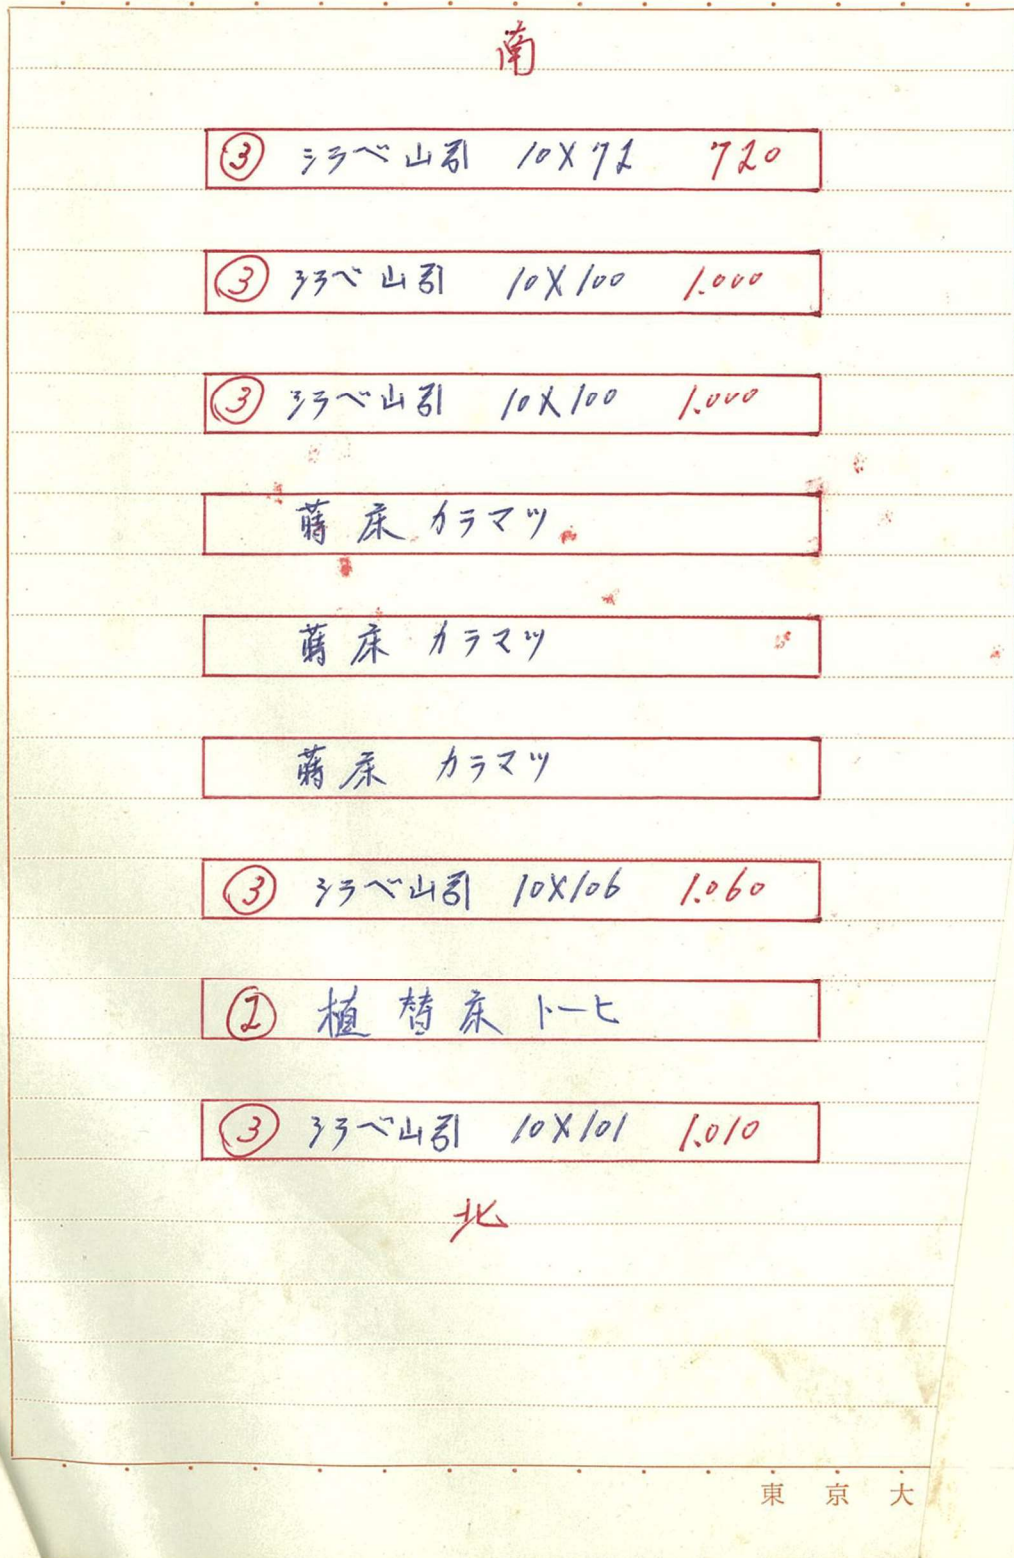 南
③ シラベ山引 10×72 720
③ シラベ山引 10×100 1.000
③ シラベ山引 10×100 1.000
蒔床 カラマツ
蒔床 カラマツ
蒔床 カラマツ
③ シラベ山引 10×106 1.060
② 植替床 トーヒ
③ シラベ山引 10×101 1.010
北
東京大